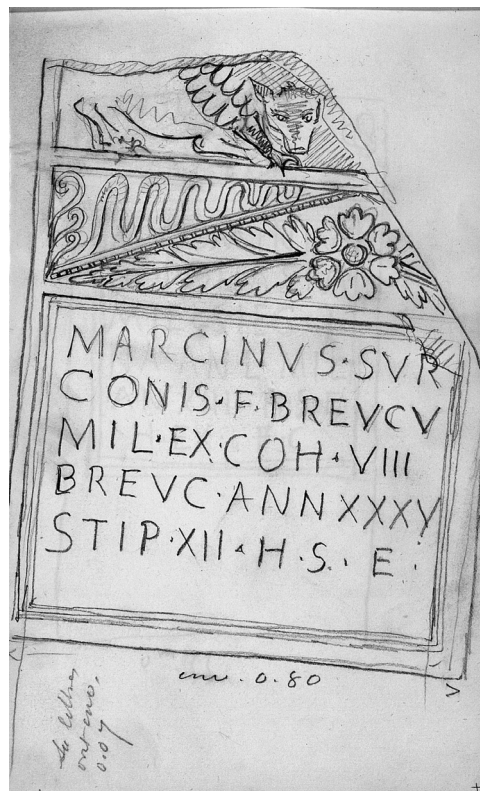 MARCINVS·SVR
CONIS·F·BREVCV
MIL·EX·COH·VIII
BREVC·ANNXXXV
STIP·XII·H·S·E·
env. 0.80
les lettres
ont env.
0.07